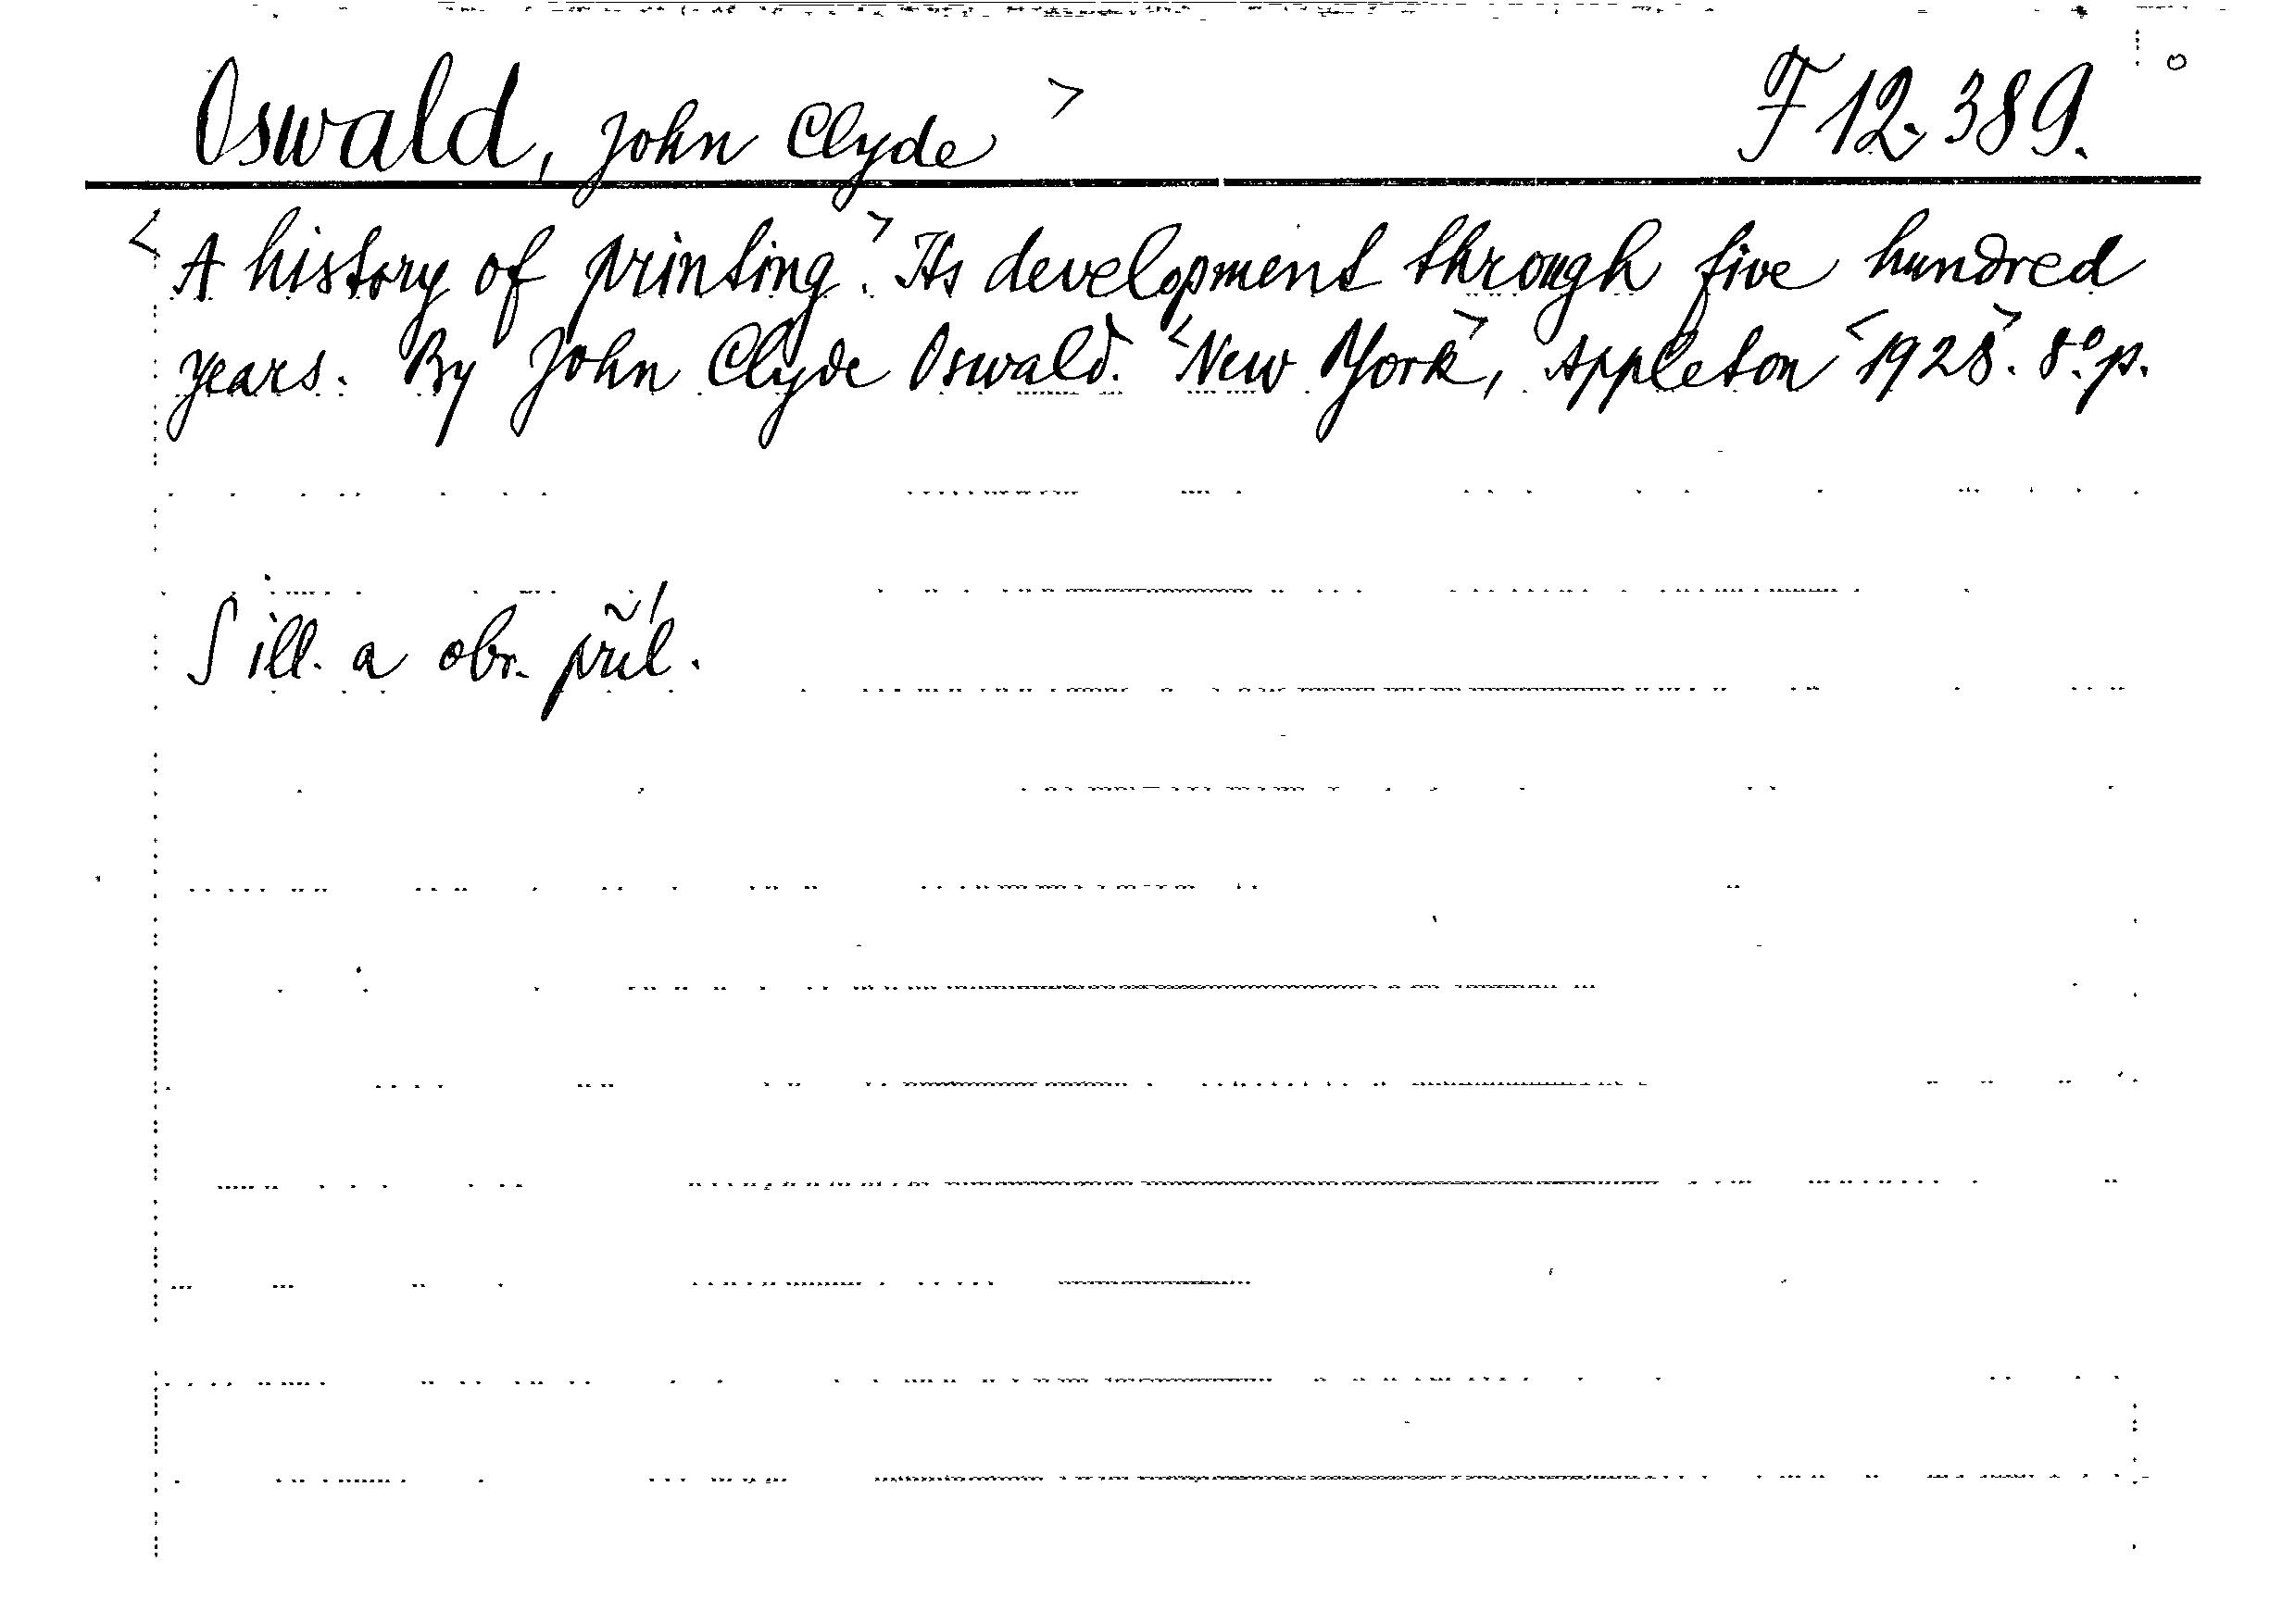 Oswald, John Clyde > F 12.389.
<A history of printing.> Its development through five hundred
years. By John Clyde Oswald. <New York>, Appleton <1928>. 8° p.
S ill. a obr. příl.